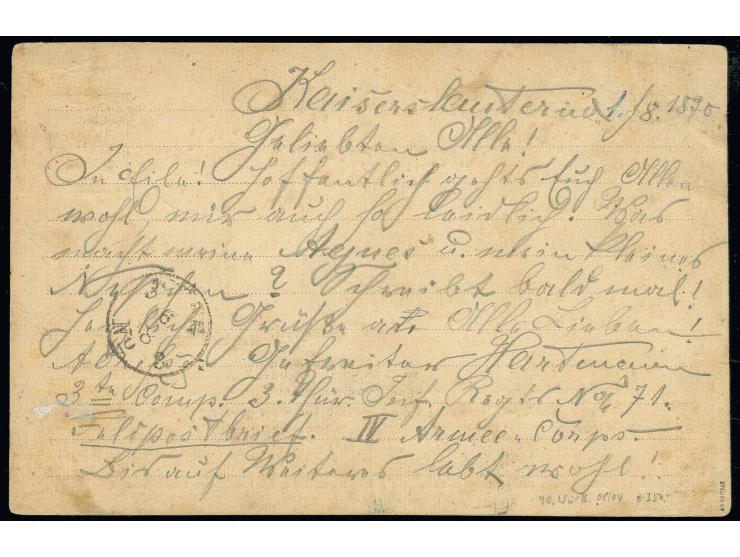 Kaiserslautern d 1./8. 1870
Geliebten Alle!
In Eile! Hoffentlich gehts Euch Allen
wohl, mir auch so leidlich. Was
macht meine Agnes u. mein kleines
? Schreibt bald mal!
Herzliche Grüße an Alle Lieben!
Gefreiter Hartmann
3te Comp. 3. Thür. Inf. Regts No 71.
Feldpostbrief. IV Armee-Corps.
Bis auf Weiteres lebt wohl!